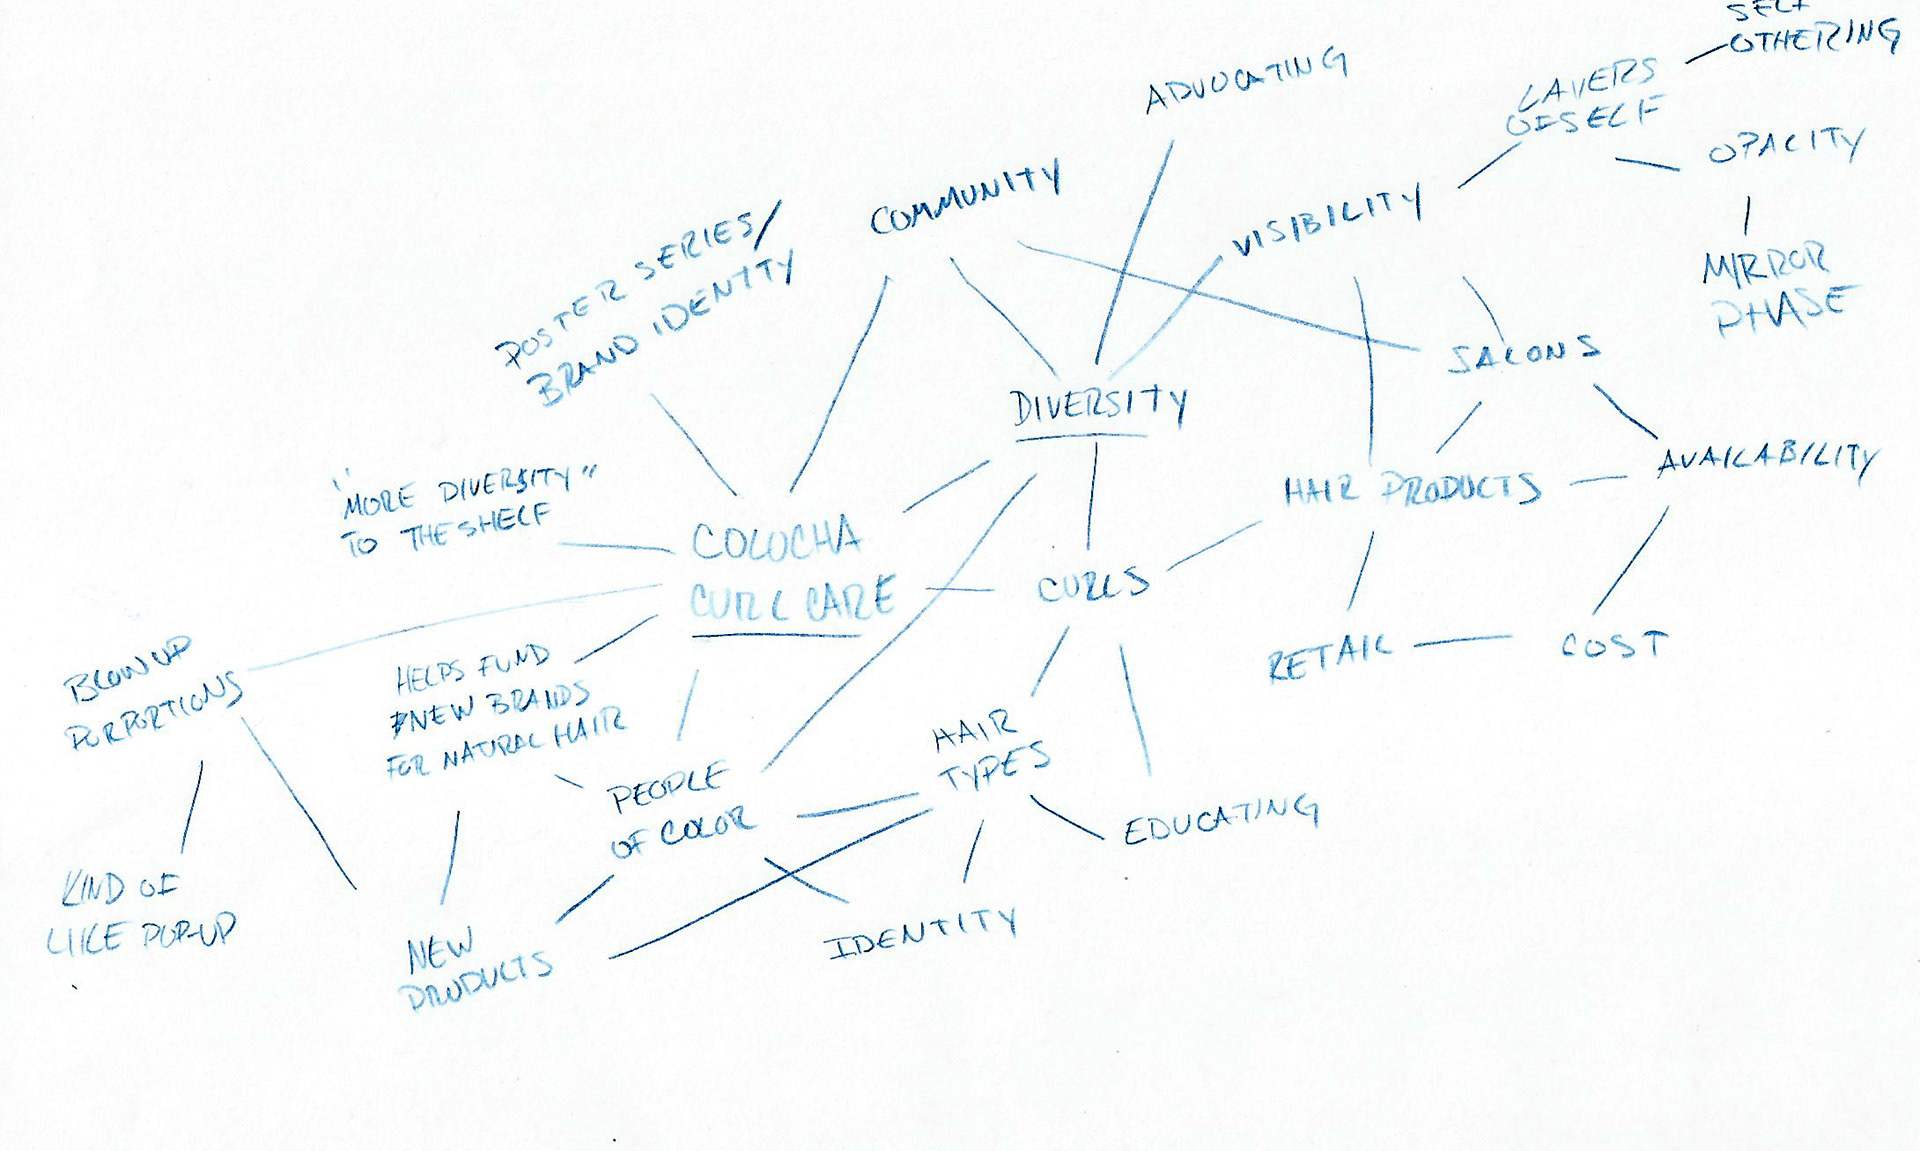 SELF
OTHERING
ADVOCATING
LAYERS
OF SELF
OPACITY
COMMUNITY
VISIBILITY
MIRROR
PHASE
POSTER SERIES/
BRAND IDENTITY
SALONS
DIVERSITY
"MORE DIVERSITY"
TO THE SHELF
HAIR PRODUCTS
AVAILABILITY
COLOCHA
CURL CARE
CURLS
RETAIL
COST
BLOWN UP
PORPORTIONS
HELPS FUND
NEW BRANDS
FOR NATURAL HAIR
HAIR
TYPES
PEOPLE
OF COLOR
EDUCATING
KIND OF
LIKE POP-UP
NEW
PRODUCTS
IDENTITY